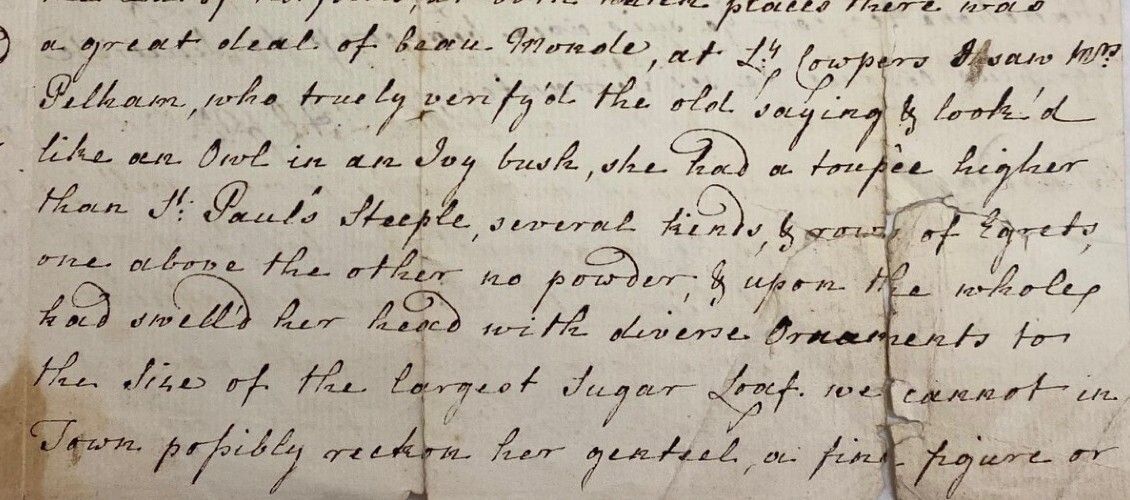 places there was
a great deal of beau Monde, at Ly. Cowpers I saw Mrs.
Pelham, who truely verify'd the old saying & look'd
like an Owl in an Ivy bush, she had a toupèe higher
than St: Paul's Steeple, several kinds, & rows of Egrets,
one above the other no powder, & upon the whole,
had swell'd her head with diverse Ornaments to
the Size of the largest Sugar Loaf. we cannot in
Town poſsibly reckon her genteel, a fine figure or